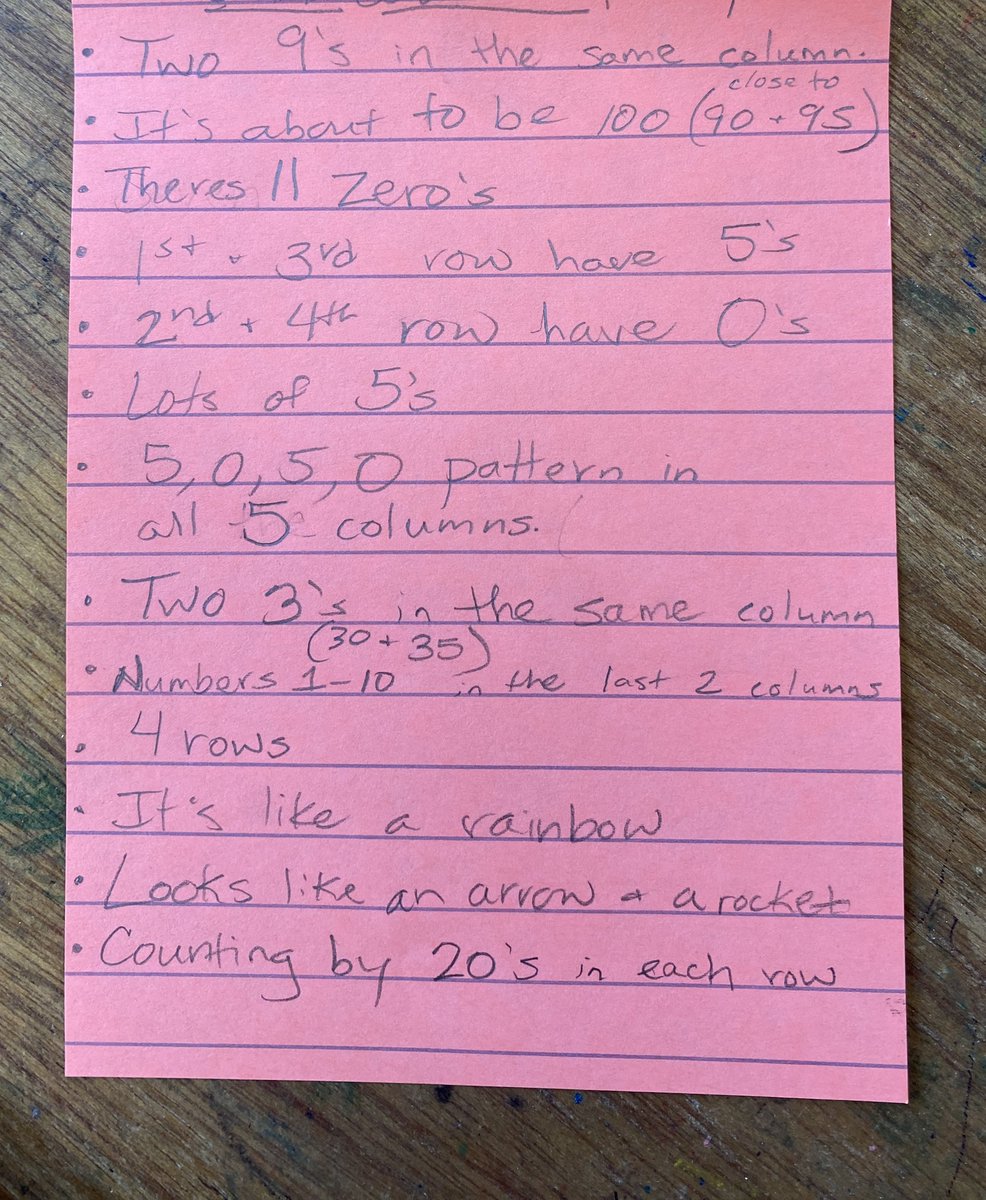 • Two 9's in the same column.
close to
• It's about to be 100 (90 + 95)
• Theres 11 Zero's
• 1st + 3rd row have 5's
• 2nd + 4th row have 0's
• Lots of 5's
• 5, 0, 5, 0 pattern in
all 5 columns.
• Two 3's in the same column
(30 + 35)
• Numbers 1-10 in the last 2 columns
• 4 rows
• It's like a rainbow
• Looks like an arrow + a rocket
• Counting by 20's in each row